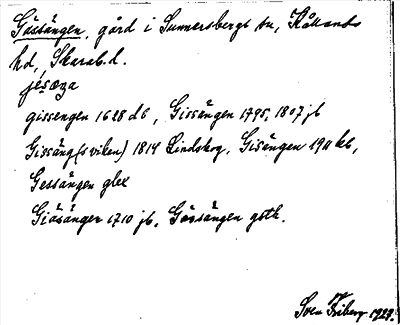 Gässängen, gård i Sunnersbergs sn, Kållands
hd, Skarab. l.
jésæŋa
gissengen 1628 db, Gissängen 1795, 1807 jb
Gissäng(sviken) 1814 Lindskog, Gisängen 1911 kb,
Gessängen glex
Giäsänger 1710 jb, Gässängen gsth.
Sven Friberg 1929.